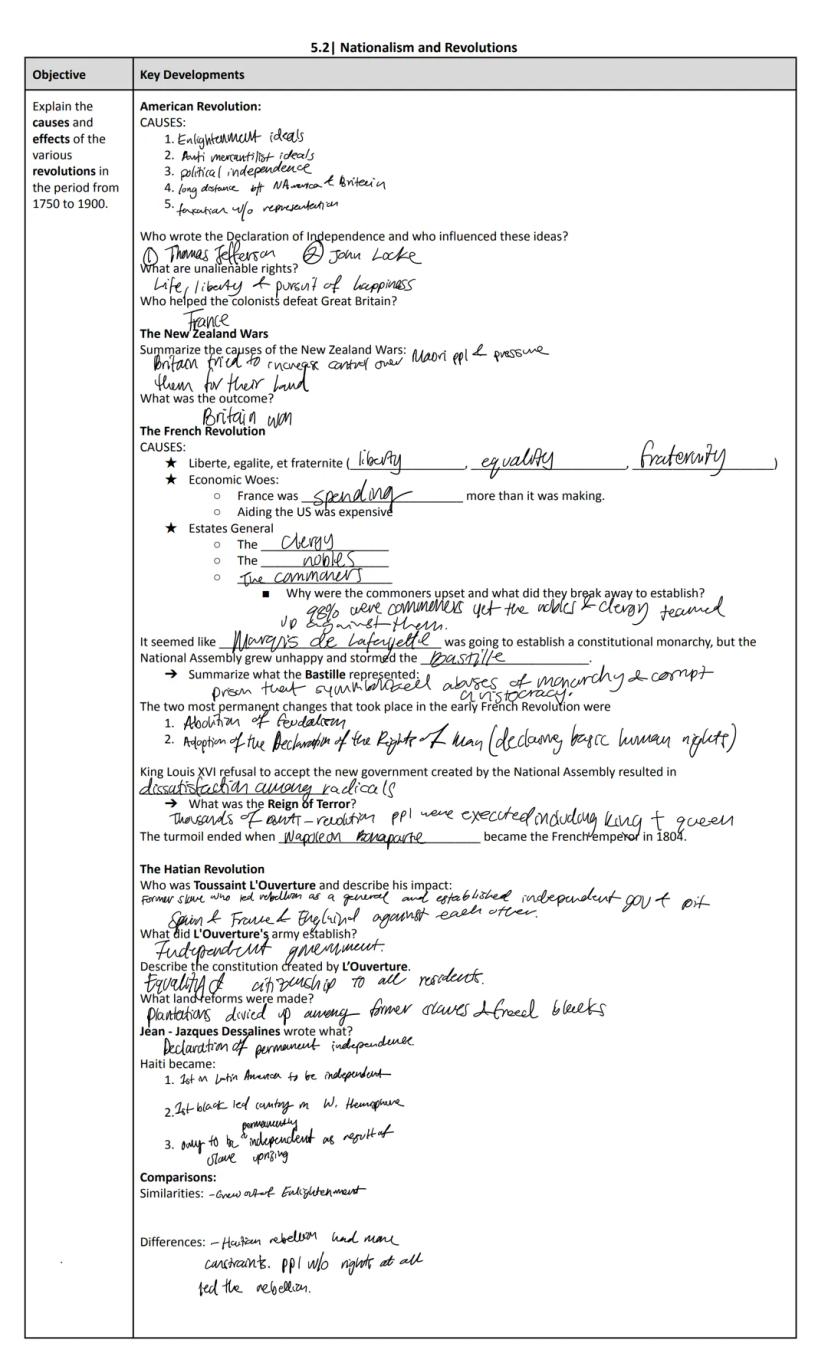 5.2| Nationalism and Revolutions
Objective
Key Developments
Explain the
causes and
effects of the
various
revolutions in
the period from
1750 to 1900.
American Revolution:
CAUSES:
1. Enlightenment ideals
2. Anti mercantilist ideals
3. political independence
4. long distance btt NAmerica & Britain
5. taxation w/o representation
Who wrote the Declaration of Independence and who influenced these ideas?
① Thomas Jefferson ② John Locke
What are unalienable rights?
Life, liberty & pursuit of happiness
Who helped the colonists defeat Great Britain?
France
The New Zealand Wars
Summarize the causes of the New Zealand Wars: Maori ppl & pressure
Britain tried to increase control over
them for their land
What was the outcome?
Britain won
The French Revolution
CAUSES:
★ Liberte, egalite, et fraternite ( liberty , equality , fraternity )
★ Economic Woes:
○ France was spending more than it was making.
○ Aiding the US was expensive
★ Estates General
○ The clergy
○ The nobles
○ The commoners
■ Why were the commoners upset and what did they break away to establish?
98% were commoners yet the nobles & clergy teamed
up against them.
It seemed like Marquis de Lafayette was going to establish a constitutional monarchy, but the
National Assembly grew unhappy and stormed the Bastille .
→ Summarize what the Bastille represented:
prison that symbolized abuses of monarchy & corrupt
aristocracy.
The two most permanent changes that took place in the early French Revolution were
1. Abolition of feudalism
2. Adoption of the Declaration of the Rights of Man (declaring basic human rights)
King Louis XVI refusal to accept the new government created by the National Assembly resulted in
dissatisfaction among radicals
→ What was the Reign of Terror?
Thousands of anti-revolution ppl were executed including king + queen
The turmoil ended when Napoleon Bonaparte became the French emperor in 1804.
The Hatian Revolution
Who was Toussaint L'Ouverture and describe his impact:
Former slave who led rebellion as a general and established independent gov + pit
Spain & France & England against each other.
What did L'Ouverture's army establish?
Independent government.
Describe the constitution created by L’Ouverture.
Equality & citizenship to all residents.
What land reforms were made?
Plantations divied up among former slaves & freed blacks
Jean - Jazques Dessalines wrote what?
Declaration of permanent independence
Haiti became:
1. 1st in Latin America to be independent
2. 1st black led country in W. Hemisphere
permanently
3. only to be ^ independent as result of
slave uprising
Comparisons:
Similarities: - Grew out of Enlightenment
Differences: - Haitian rebellion had more
constraints. ppl w/o rights at all
led the rebellion.